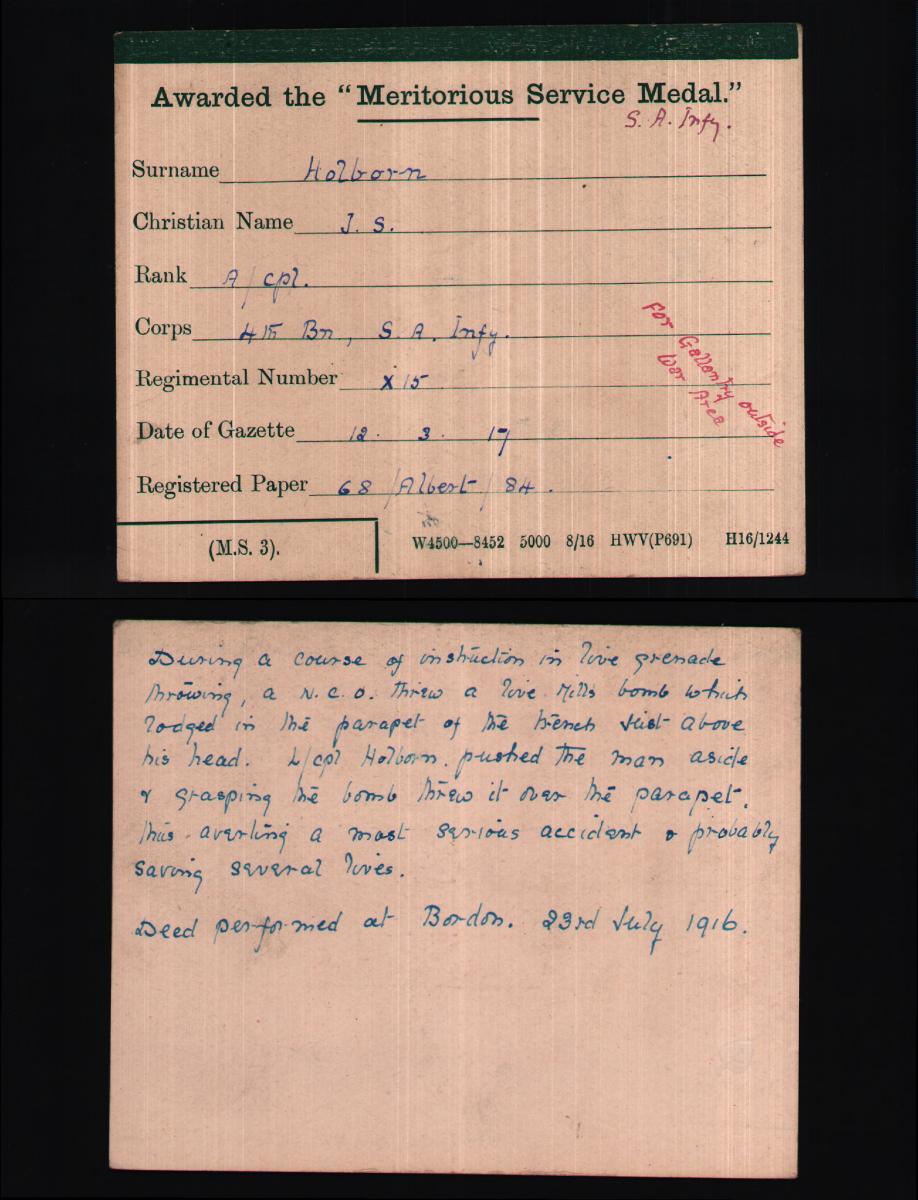 Awarded the "Meritorious Service Medal."
S. A. Infy.
Surname Holborn
Christian Name J. S.
Rank A/cpl.
Corps 4th Bn, S. A. Infy.
Regimental Number X 15
Date of Gazette 12. 3. 17
Registered Paper 68/Albert/84.
For Gallantry outside
War Area
(M.S. 3).
W4500—8452 5000 8/16 HWV(P691) H16/1244
During a course of instruction in live grenade
throwing, a N.C.O. threw a live Mills bomb which
lodged in the parapet of the trench just above
his head. L/cpl Holborn. pushed the man aside
& grasping the bomb threw it over the parapet.
thus averting a most serious accident & probably
saving several lives.
Deed performed at Bordon. 23rd July 1916.